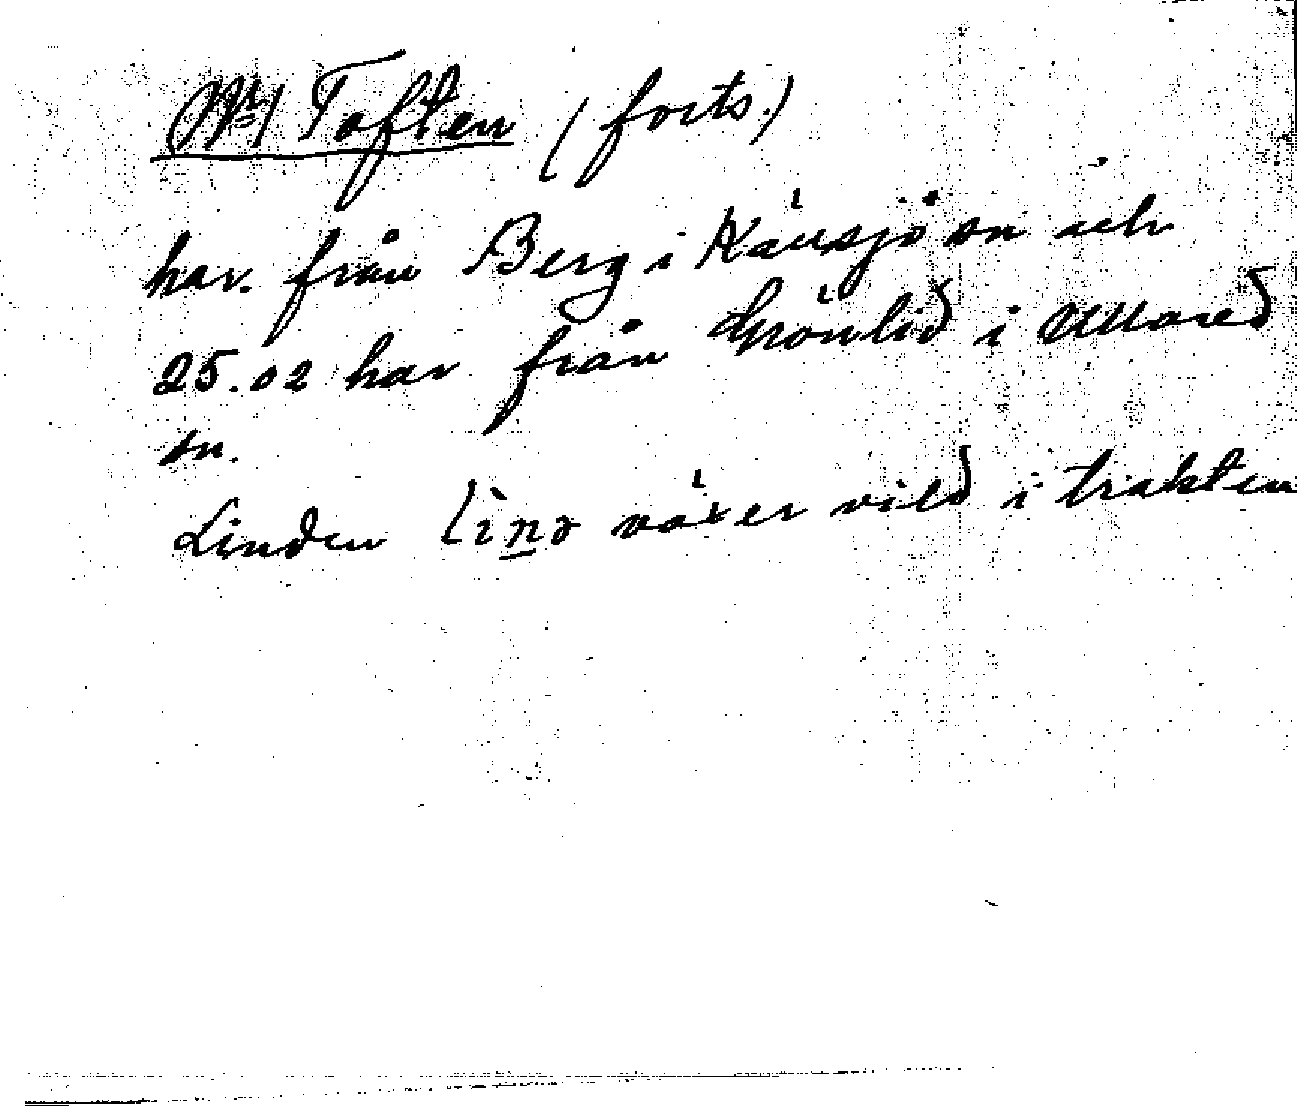 Toften (forts.)
har. från Berg i Känsjö sn och
25.02 har från Grönlid i Ullared
sn.
Linden växer vild i trakten